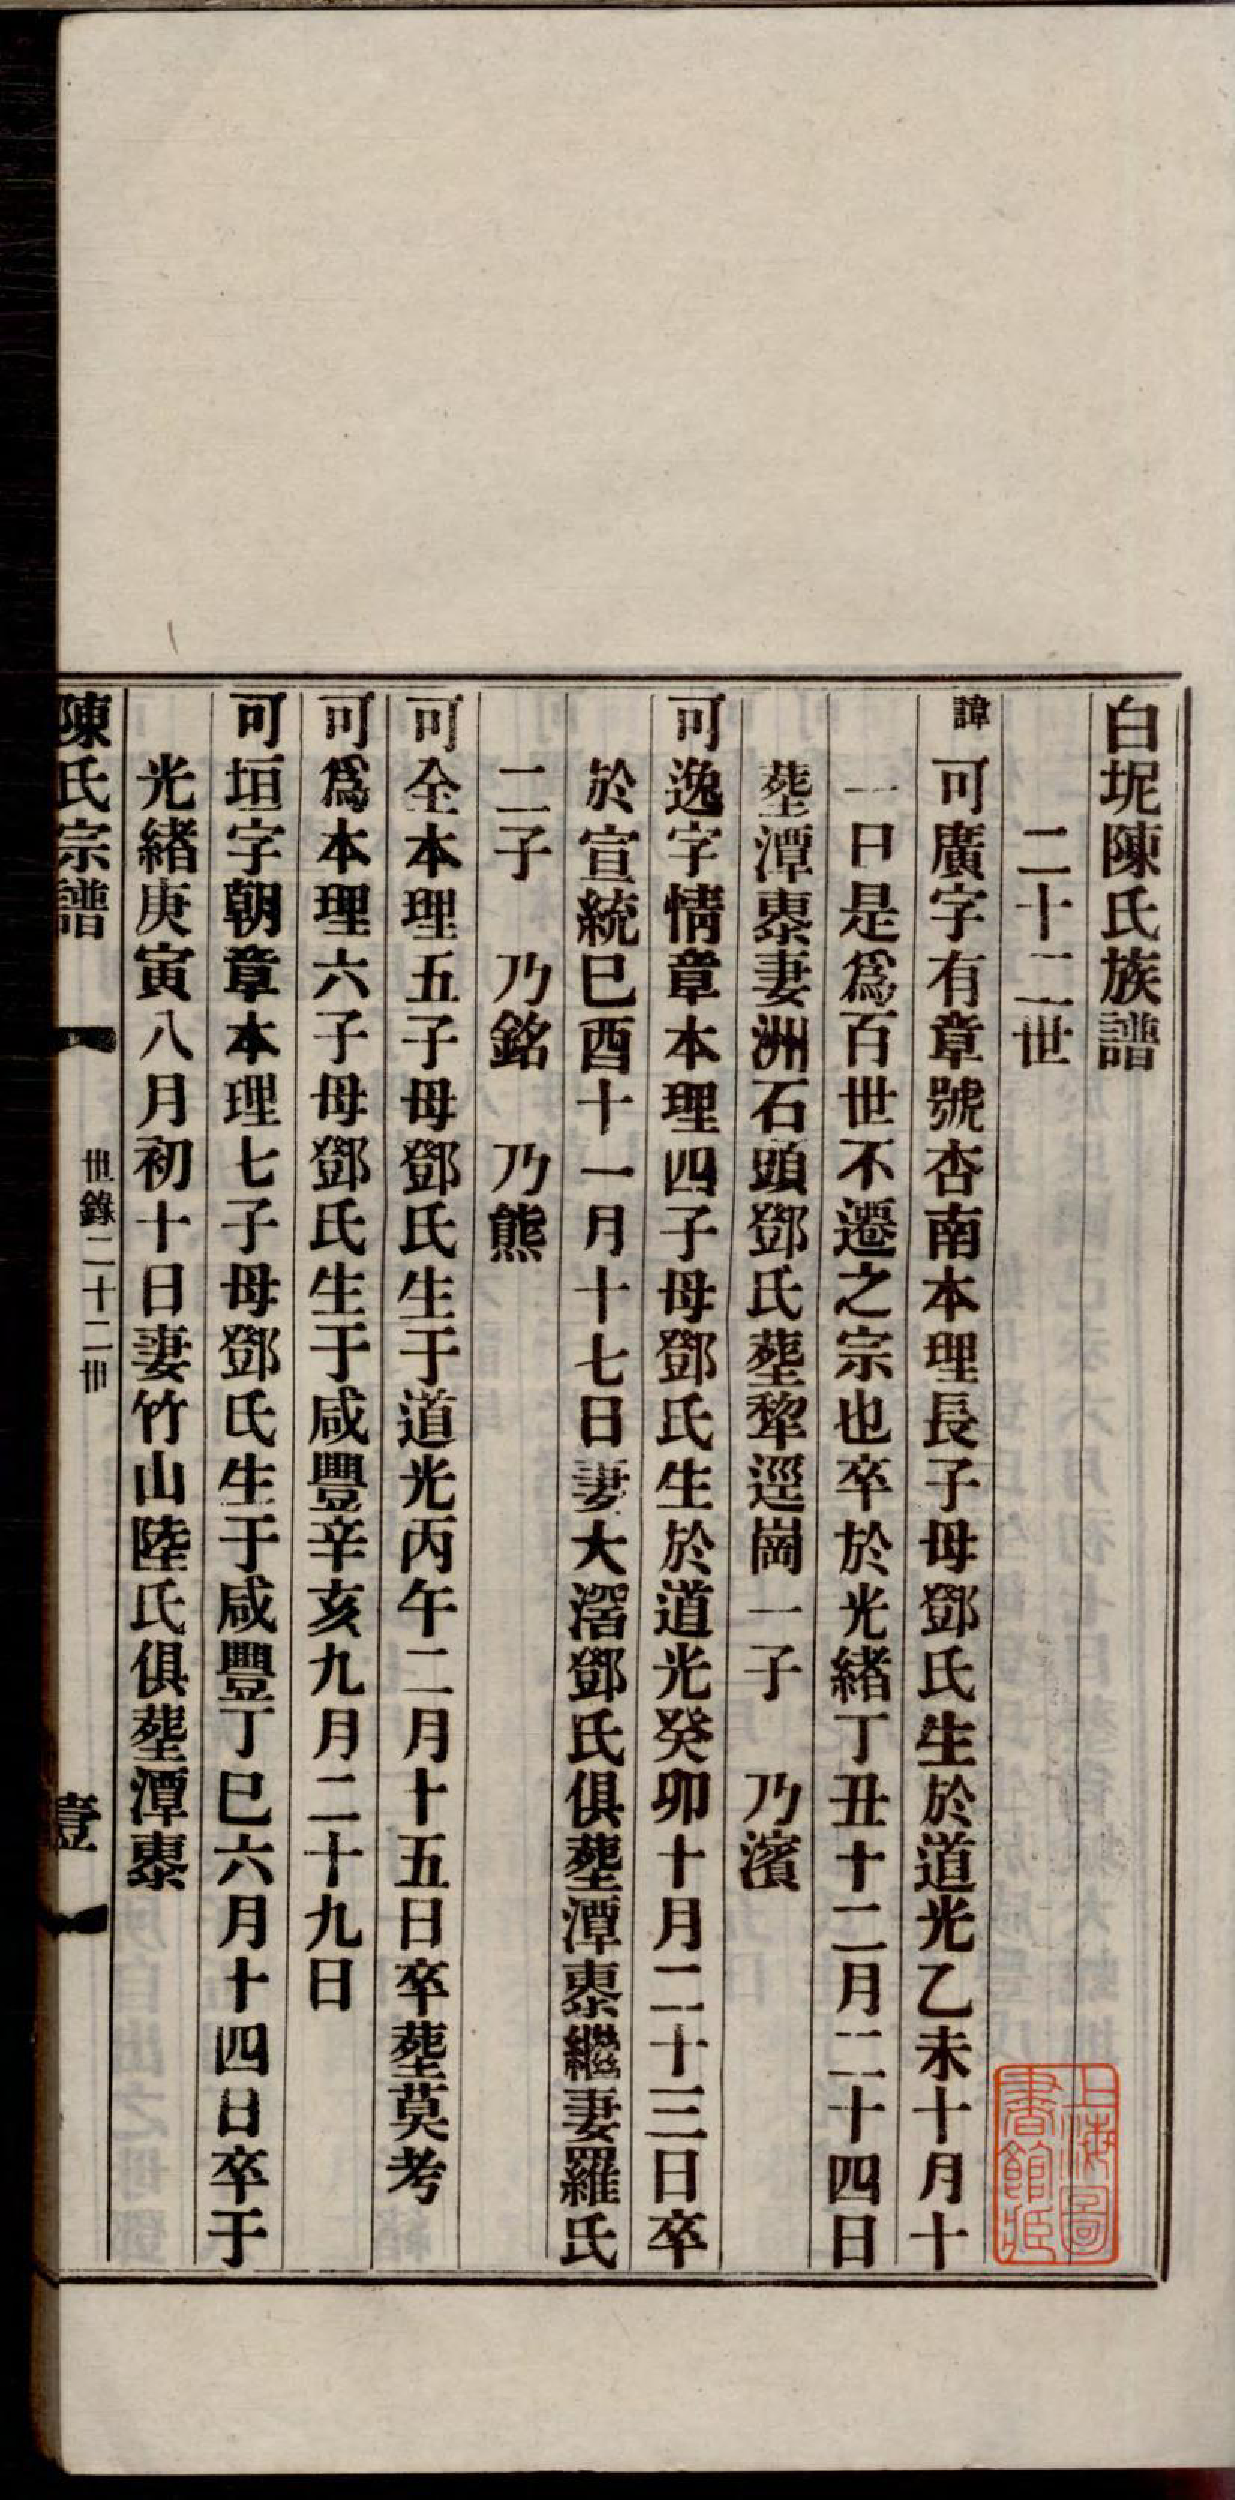 白坭陳氏族譜
二十二世
諱可廣字有章號杏南本理長子母鄧氏生於道光乙未十月十
一日是爲百世不遷之宗也卒於光緒丁丑十二月二十四日
塟潭𣜩妻洲石頭鄧氏塟犂逕崗一子 乃濱
可逸字情章本理四子母鄧氏生於道光癸卯十月二十三日卒
於宣統巳酉十一月十七日妻大滘鄧氏俱塟潭繼妻羅氏
二子 乃銘 乃熊
可全本理五子母鄧氏生于道光丙午二月十五日卒塟莫考
可爲本理六子母鄧氏生于咸豐辛亥九月二十九日
可垣字朝章本理七子母鄧氏生于咸豐丁巳六月十四日卒于
光緒庚寅八月初十日妻竹山陸氏俱塟潭
陳氏宗譜
世錄二十二世
壹
上海圖書館藏